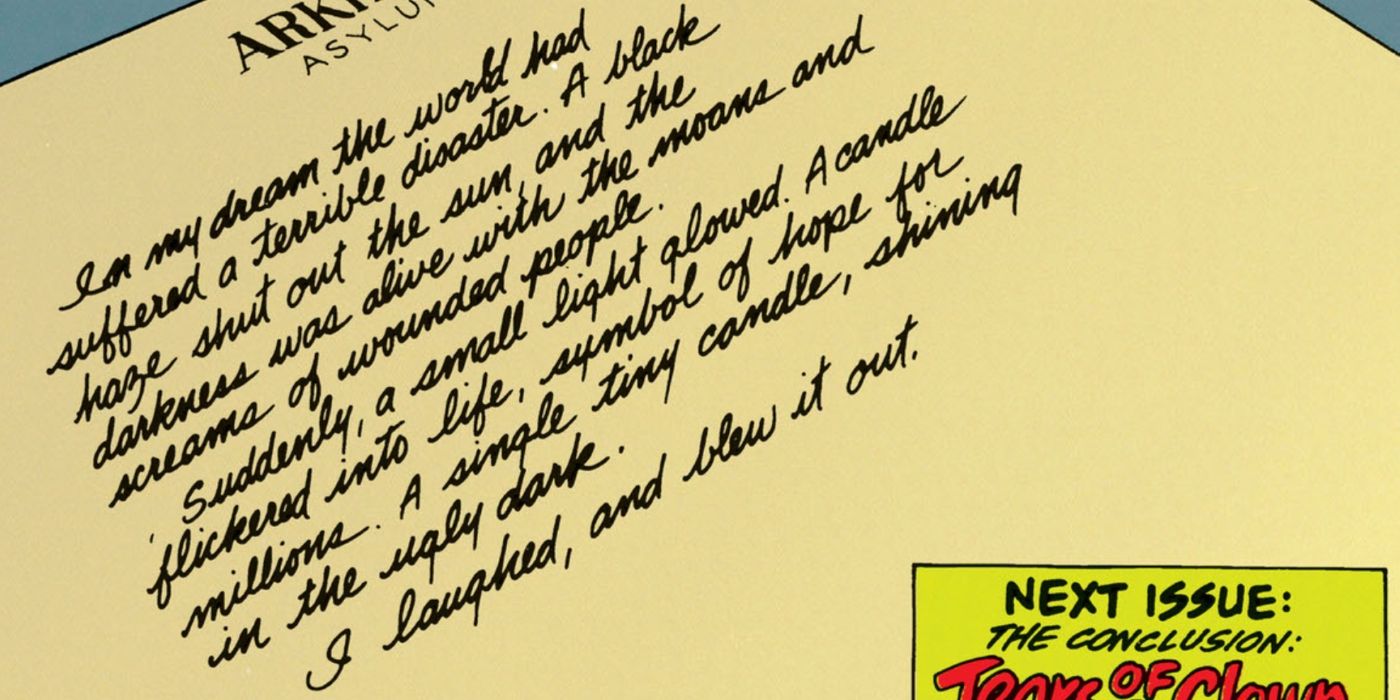 ASYLUM
In my dream the world had
suffered a terrible disaster. A black
haze shut out the sun, and the
darkness was alive with the moans and
screams of wounded people.
Suddenly, a small light glowed. A candle
flickered into life, symbol of hope for
millions. A single tiny candle, shining
in the ugly dark.
I laughed, and blew it out.
NEXT ISSUE:
THE CONCLUSION:
Tears OF Clown